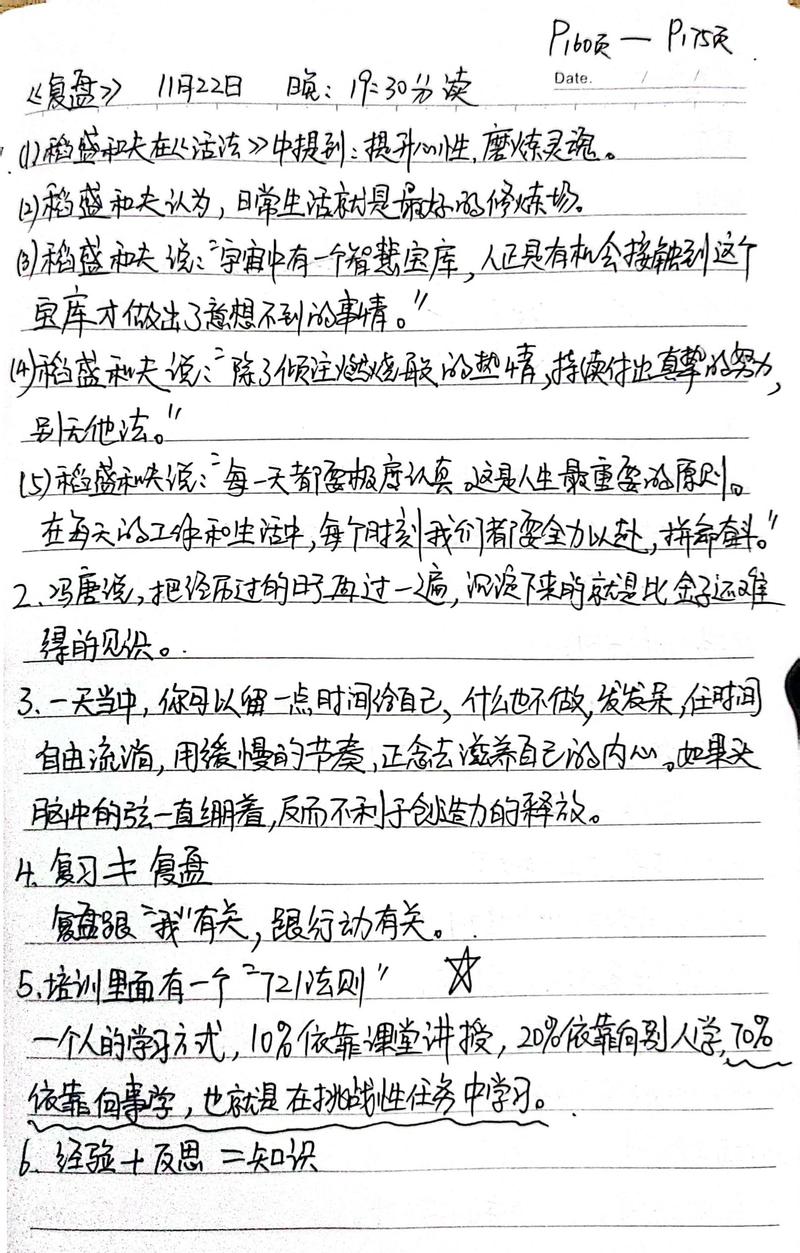 P160页 — P175页
Date.     /     /
《复盘》 11月22日 晚:19:30分读
(1)稻盛和夫在《活法》中提到:提升心性,磨炼灵魂。
(2)稻盛和夫认为,日常生活就是最好的修炼场。
(3)稻盛和夫说:“宇宙中有一个智慧宝库,人正是有机会接触到这个
宝库才做出了意想不到的事情。”
(4)稻盛和夫说:“除了倾注燃烧般的热情,持续付出真挚的努力,
别无他法。”
(5)稻盛和夫说:“每一天都要极度认真,这是人生最重要的原则。
在每天的工作和生活中,每个时刻我们都要全力以赴,拼命奋斗。”
2、冯唐说,把经历过的日子再过一遍,沉淀下来的就是比金子还难
得的见识。
3、一天当中,你可以留一点时间给自己,什么也不做,发发呆,任时间
自由流淌,用缓慢的节奏,正念去滋养自己的内心。如果头
脑中的弦一直绷着,反而不利于创造力的释放。
4、复习≠复盘
复盘跟“我”有关,跟行动有关。
5、培训里面有一个“721法则” ☆
一个人的学习方式,10%依靠课堂讲授,20%依靠向别人学,70%
依靠向事学,也就是在挑战性任务中学习。
6、经验+反思=知识